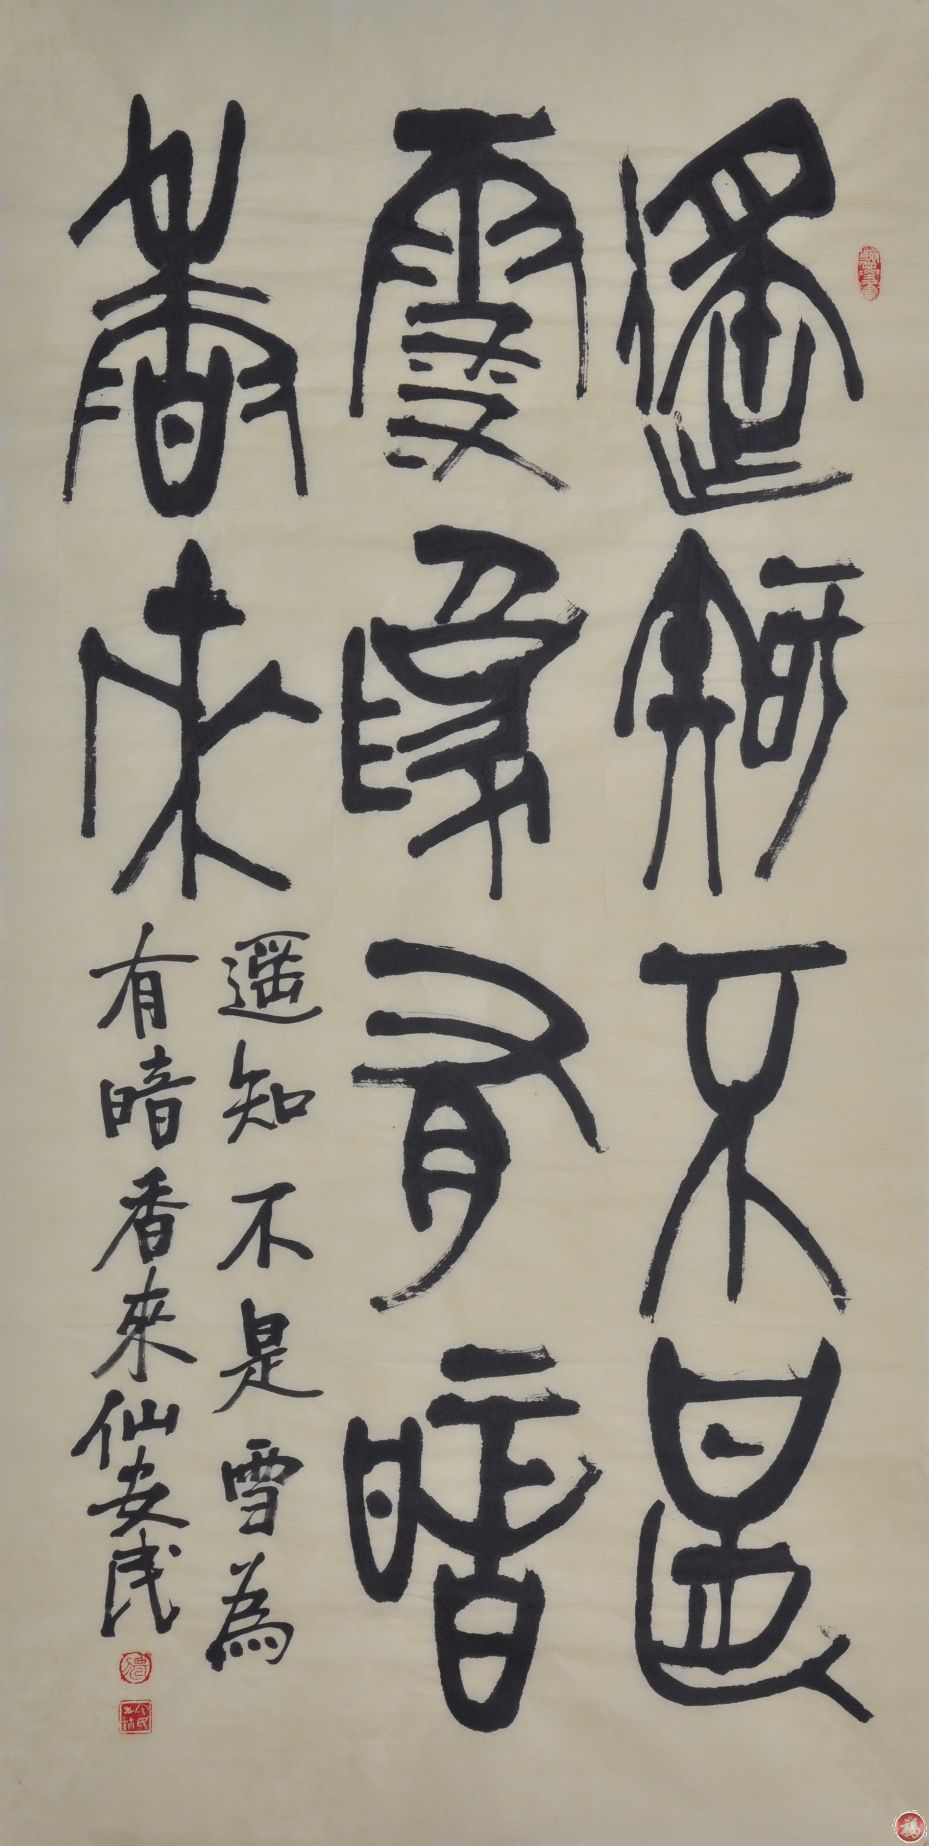 遥知不是
雪為有暗
香来
遥知不是雪為
有暗香來仙安民
福